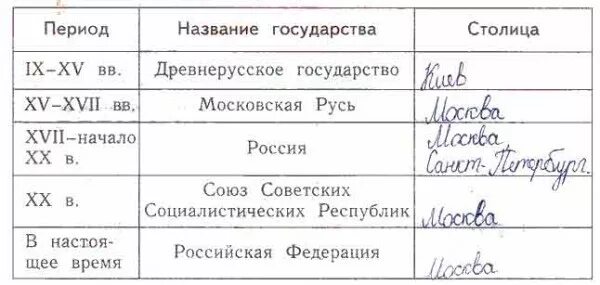 Период Название государства Столица
IX–XV вв. Древнерусское государство Киев
XV–XVII вв. Московская Русь Москва
XVII–начало
XX в.
Россия
Москва,
Санкт-Петербург.
XX в.
Союз Советских
Социалистических Республик
Москва
В настоя-
щее время
Российская Федерация
Москва